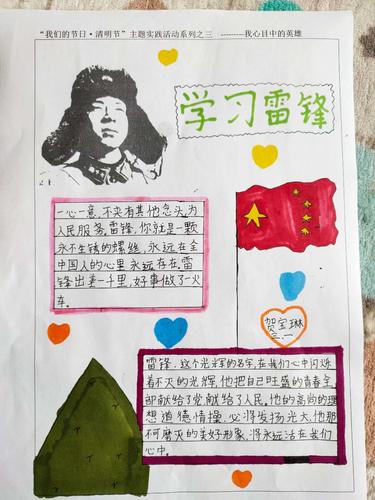 “我们的节日·清明节”主题实践活动系列之三 --------我心目中的英雄
学习雷锋
一心一意,不夹有其他念头,为
人民服务。雷锋,你就是一颗
永不生锈的螺丝,永远在全
中国人的心里永远存在。雷
锋出差一千里,好事做了一火
车。
贺宝琳
三.一
雷锋,这个光辉的名字,在我们心中闪烁
着不灭的光辉,他把自己旺盛的青春全
部献给了党献给了人民。他的高尚的理
想道德情操,必将发扬光大,他那
不可磨灭的美好形象,将永远活在我们
心中。